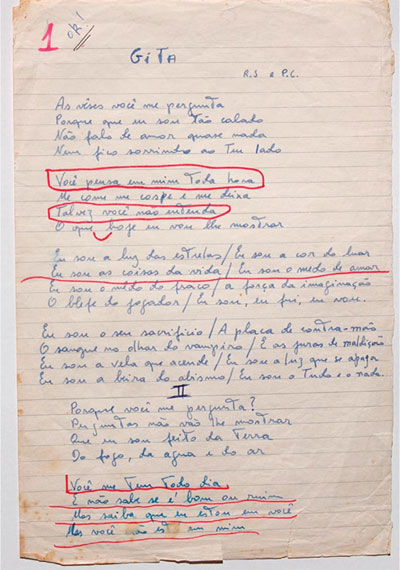 1 OK!
GITA
R.S e P.C.
As vêses você me pergunta
Porque que eu sou tão calado
Não falo de amor quase nada
Nem fico sorrindo ao teu lado
Você pensa em mim toda hora
Me come me cospe e me deixa
Talvez você não entenda
O que hoje eu vou lhe mostrar
Eu sou a luz das estrelas/Eu sou a cor do luar
Eu sou as coisas da vida/Eu sou o medo de amar
Eu sou o medo do fraco/a força da imaginação
O blefe do jogador/Eu sou, eu fui, eu vou.
Eu sou o seu sacrifício/A placa de contra-mão
O sangue no olhar do vampiro/E as juras de maldição
Eu sou a vela que acende/Eu sou a luz que se apaga
Eu sou a beira do abismo/Eu sou o Tudo e o nada.
II
Porque você me pergunta?
Perguntas não vão lhe mostrar
Que eu sou feito da terra
Do fogo, da agua e do ar
Você me tem todo dia
E não sabe se é bom ou ruim
Mas saiba que eu estou em você
Mas você não est em mim